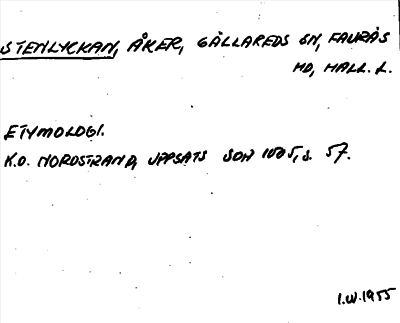 STENLYCKAN, ÅKER, GÄLLAREDS SN, FAURÅS
HD, HALL. L.
ETYMOLOGI.
K.O. NORDSTRAND, UPPSATS SOH 1005, S. 57.
I.W. 1955